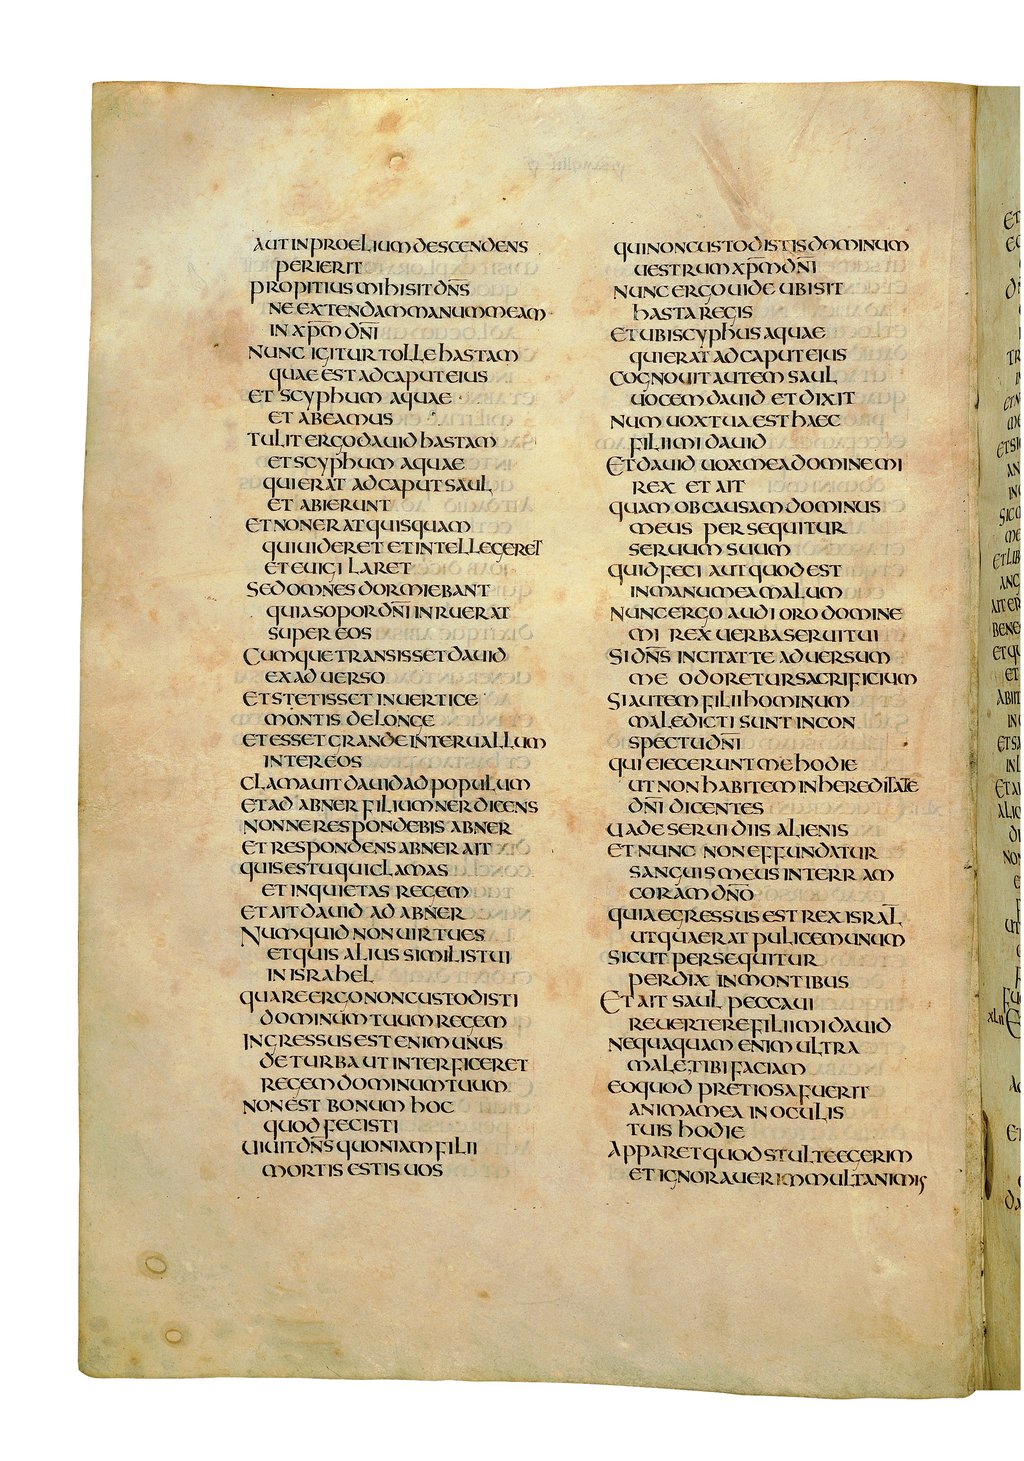 AUT IN PROELIUM DESCENDENS
PERIERIT
PROPITIUS MIHI SIT DN̅S
NE EXTENDAM MANUM MEAM
IN XP̅M DN̅I
NUNC IGITUR TOLLE HASTAM
QUAE EST AD CAPUT EIUS
ET SCYPHUM AQUAE
ET ABEAMUS
TULIT ERGO DAUID HASTAM
ET SCYPHUM AQUAE
QUI ERAT AD CAPUT SAUL
ET ABIERUNT
ET NON ERAT QUISQUAM
QUI UIDERET ET INTELLEGERET
ET EUIGILARET
SED OMNES DORMIEBANT
QUIA SOPOR DN̅I INRUERAT
SUPER EOS
CUMQUE TRANSISSET DAUID
EX ADUERSO
ET STETISSET IN UERTICE
MONTIS DE LONGE
ET ESSET GRANDE INTERUALLUM
INTER EOS
CLAMAUIT DAUID AD POPULUM
ET AD ABNER FILIUM NER DICENS
NONNE RESPONDEBIS ABNER
ET RESPONDENS ABNER AIT
QUIS ES TU QUI CLAMAS
ET INQUIETAS REGEM
ET AIT DAUID AD ABNER
NUMQUID NON UIR TU ES
ET QUIS ALIUS SIMILIS TUI
IN ISRAHEL
QUARE ERGO NON CUSTODISTI
DOMINUM TUUM REGEM
INGRESSUS EST ENIM UNUS
DE TURBA UT INTERFICERET
REGEM DOMINUM TUUM
NON EST BONUM HOC
QUOD FECISTI
UIUIT DN̅S QUONIAM FILII
MORTIS ESTIS UOS
QUI NON CUSTODISTIS DOMINUM
UESTRUM XP̅M DN̅I
NUNC ERGO UIDE UBI SIT
HASTA REGIS
ET UBI SCYPHUS AQUAE
QUI ERAT AD CAPUT EIUS
COGNOUIT AUTEM SAUL
UOCEM DAUID ET DIXIT
NUM UOX TUA EST HAEC
FILI MI DAUID
ET DAUID UOX MEA DOMINE MI
REX ET AIT
QUAM OB CAUSAM DOMINUS
MEUS PERSEQUITUR
SERUUM SUUM
QUID FECI AUT QUOD EST
IN MANU MEA MALUM
NUNC ERGO AUDI ORO DOMINE
MI REX UERBA SERUI TUI
SI DN̅S INCITAT TE ADUERSUM
ME ODORETUR SACRIFICIUM
SI AUTEM FILII HOMINUM
MALEDICTI SUNT IN CON
SPECTU DN̅I
QUI EIECERUNT ME HODIE
UT NON HABITEM IN HEREDITATE
DN̅I DICENTES
UADE SERUI DIIS ALIENIS
ET NUNC NON EFFUNDATUR
SANGUIS MEUS IN TERRAM
CORAM DN̅O
QUIA EGRESSUS EST REX ISRAL̅
UT QUAERAT PULICEM UNUM
SICUT PERSEQUITUR
PERDIX IN MONTIBUS
ET AIT SAUL PECCAUI
REUERTERE FILI MI DAUID
NEQUAQUAM ENIM ULTRA
MALE TIBI FACIAM
EO QUOD PRETIOSA FUERIT
ANIMA MEA IN OCULIS
TUIS HODIE
APPARET QUOD STULTE EGERIM
ET IGNORAUERIM MULTA NIMIS